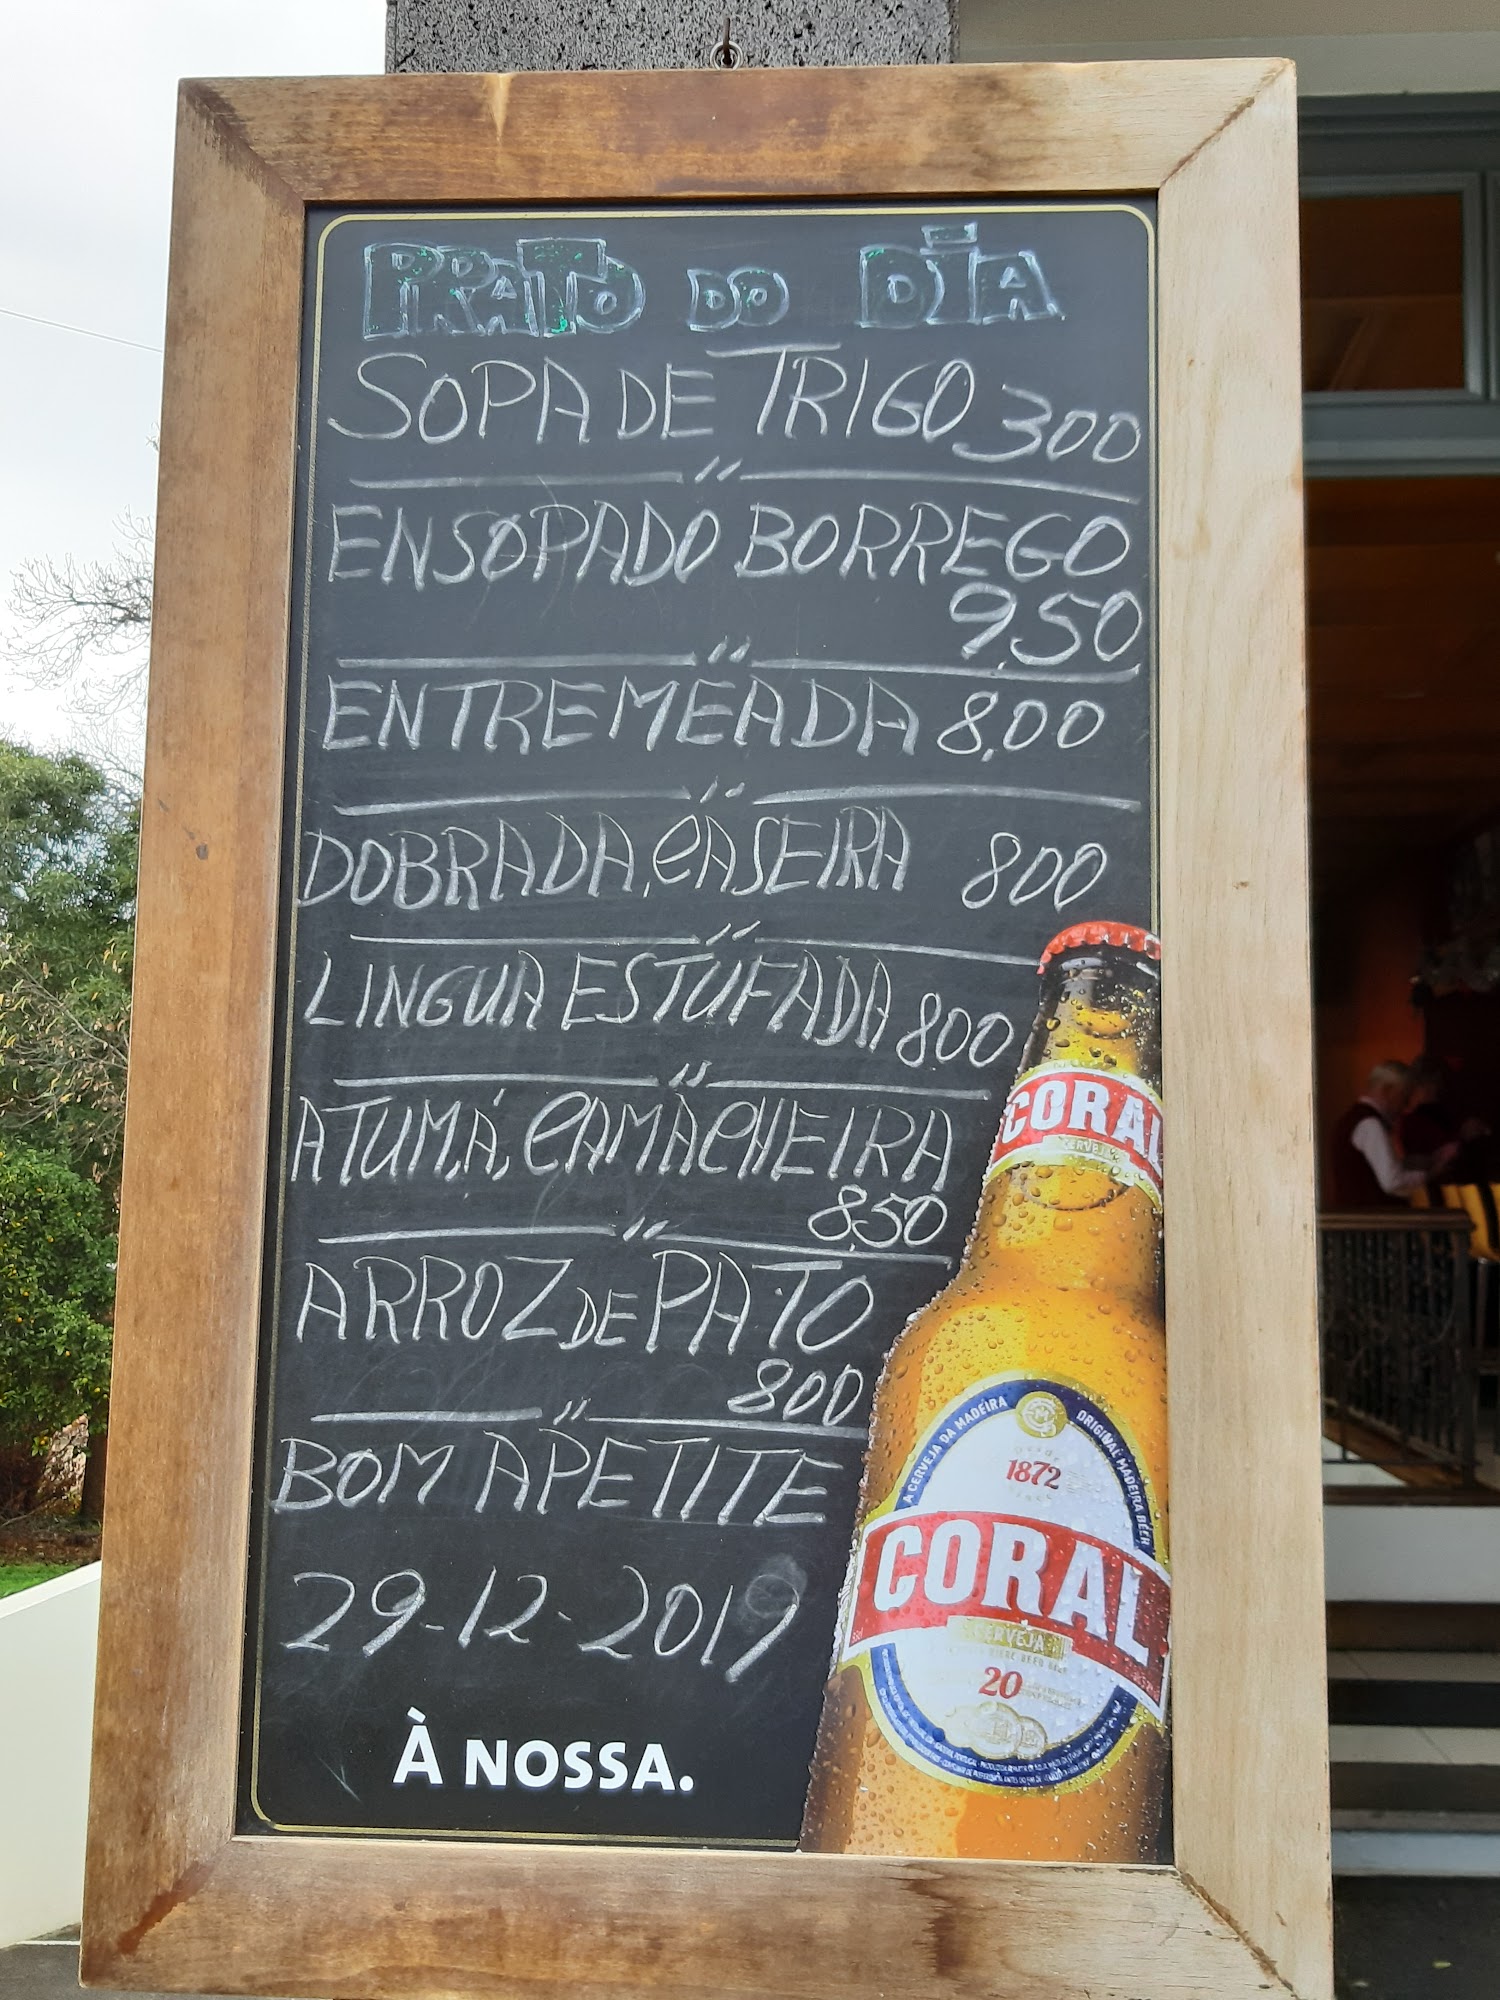 PRATO DO DIA
SOPA DE TRIGO 300
ENSOPADO BORREGO
9,50
ENTREMEADA 8,00
DOBRADA, CASEIRA 800
LINGUA ESTUFADA 800
ATUM, Á, CAMACHEIRA
8,50
ARROZ DE PATO
800
BOM APETITE
29-12-2019
À NOSSA.
CORAL
CERVEJA
A CERVEJA DA MADEIRA ORIGINAL MADEIRA BEER
Desde
1872
Since
CORAL
CERVEJA
20